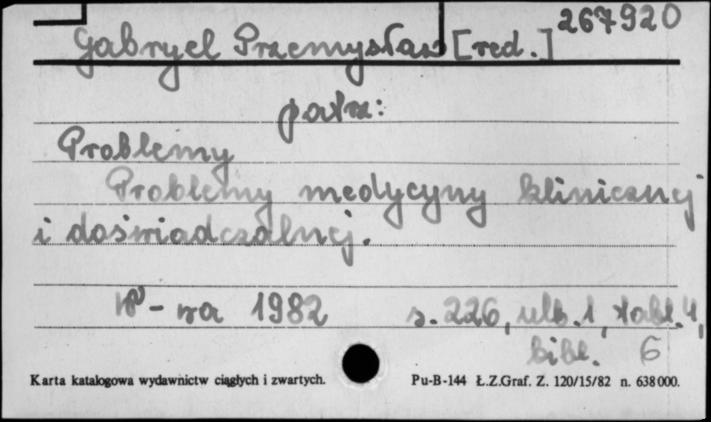 267920
Gabryel Przemysław [red.]
patrz:
Problemy
Problemy medycyny klinicznej
i doświadczalnej.
W-wa 1982 s. 226, ulb. 1, tabl. 4,
bibl. 6
Karta katalogowa wydawnictw ciągłych i zwartych. Pu-B-144 Ł.Z.Graf. Z. 120/15/82 n. 638000.